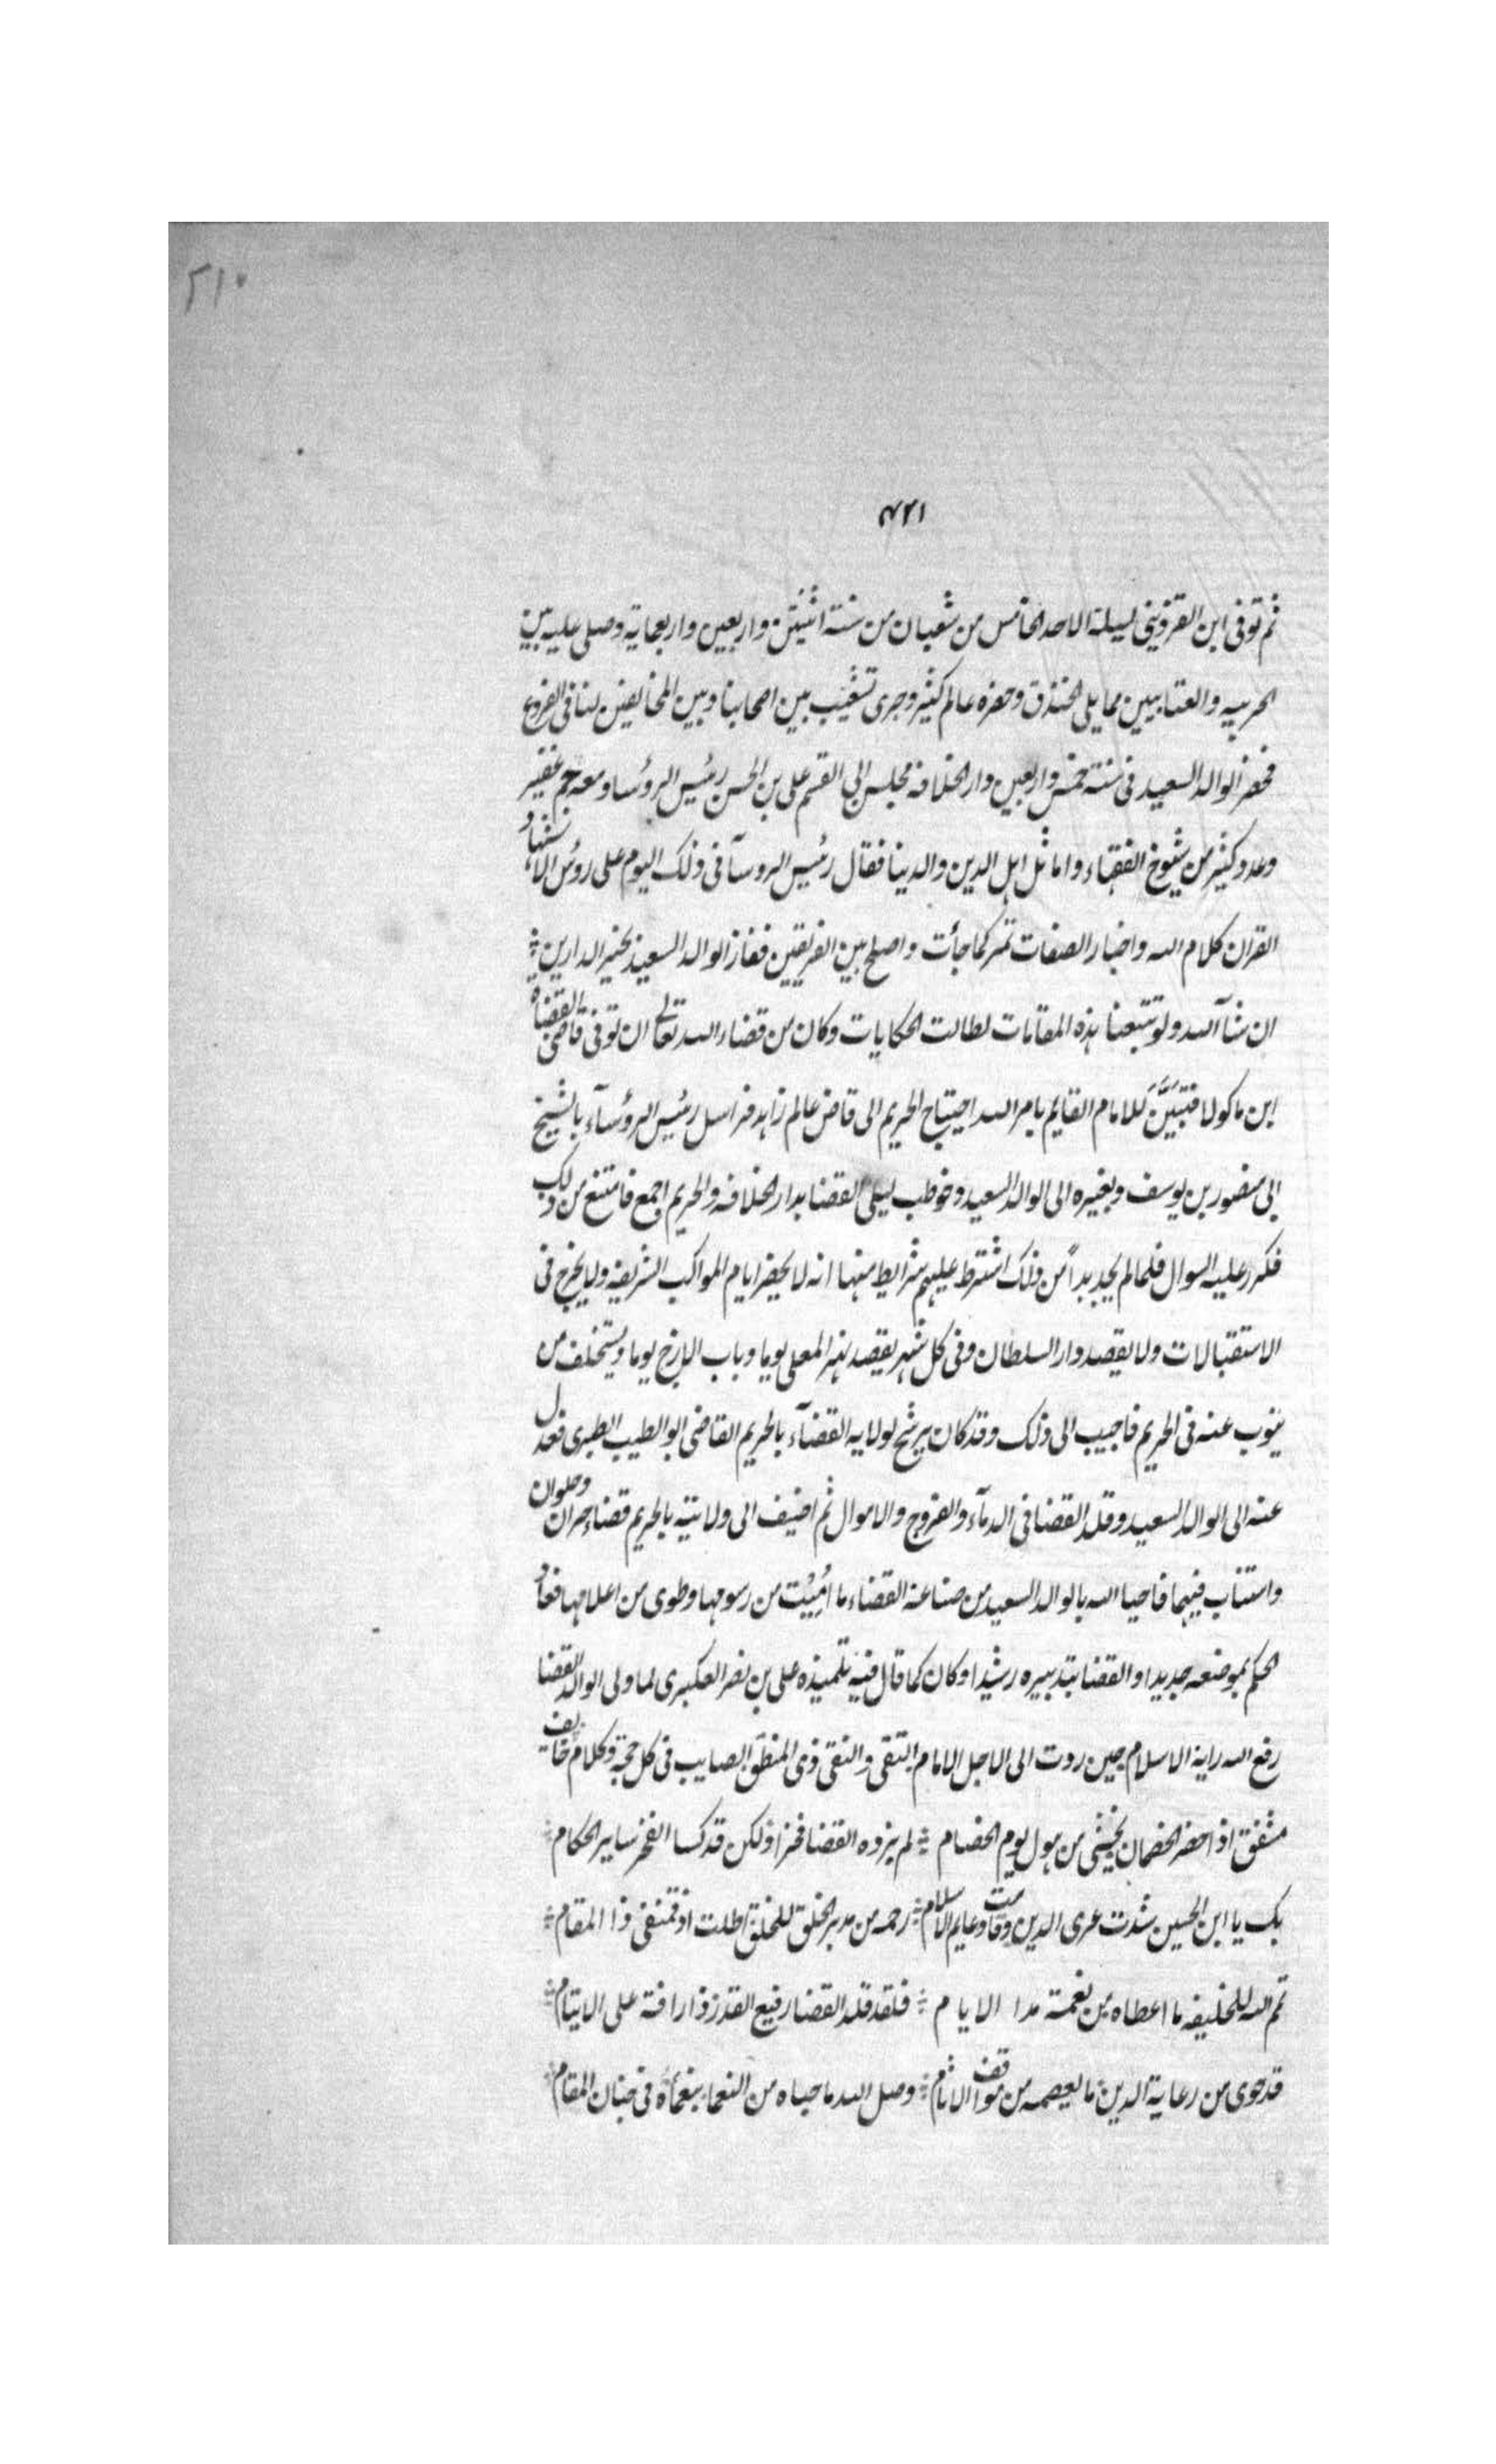 ٢١٠
٤٢١
ثم توفى ابن القزويني ليلة الاحد الخامس من شعبان من سنة اثنتين واربعين واربعماية وصلى عليه بين
الحربيه والعتابيين مما يلى الخندق وحضره عالم كثير وجرى تشغيب بين اصحابنا وبين المخالفين لنا فى الفروع
فحضر الوالد السعيد فى سنة خمس واربعين دار الخلافه مجلس ابى القسم على بن الحسن رئيس الرؤسا ومعه جم غفير
وعدد كثير من شيوخ الفقهاء واماثل اهل الدين والدينا فقال رئيس الروسآ فى ذلك اليوم على رؤس الاشهاد
القران كلام الله واخبار الصفات تمر كما جأت واصلح بين الفريقين ففاز الوالد السعيد بخير الدارين
ان شآ الله ولو تتبعنا هذه المقامات لطالت الحكايات وكان من قضاء الله تعالى ان توفى قاضى القضاه
ابن ماكولا فتبيَّن للامام القايم بامر الله احتياج الحريم الى قاض عالم زاهد فراسل رئيس الرؤسآء بالشيخ
ابى منصور بن يوسف وبغيره الى الوالد السعيد وخوطب ليلى القضا بدار الخلافه والحريم اجمع فامتنع من ذلك
فكرر عليه السوال فلما لم يجد بداً من ذلك اشترط عليهم شرايط منها انه لا يحضر ايام المواكب الشريفه ولا يخرج فى
الاستقبالات ولا يقصد دار السلطان وفى كل شهر يقصد نهر المعلى يوما وباب الازج يوما ويستخلف من
ينوب عنه فى الحريم فاجيب الى ذلك وقد كان يرشح لولايه القضآء بالحريم القاضى ابو الطيب الطبرى فعدل
عنه الى الوالد السعيد وقلد القضا فى الدمآء والفروج والاموال ثم اضيف الى ولايته بالحريم قضاء حران وحلوان
واستناب فيهما فاحيا الله بالوالد السعيد من صناعة القضاء ما اُمِيْت من رسومها وطوى من اعلامها فعاد
الحكم بموضعه جديدا والقضا بتدبيره رشيدا وكان كما قال فيه تلميذه على بن نصر العكبرى لما ولى الوالد القضا
رفع الله راية الاسلام حين ردت الى الاجل الامام التقى والنقى ذى المنطق الصايب فى كل حجة وكلام خايف
مشفق اذا حضر الخصمان يخشى من هول يوم الخصام لم يزده القضا فخرا ولكن قد كسا الفخر ساير الحكام
بك يا ابن الحسين شدت عرى الدين وقامت دعايم الاسلام رحمه من مدبر الخلق للخلق اطلت اذ قمت فى ذا المقام
تمم الله للخليفه ما اعطاه من نعمة مدا الايام فلقد قلد القضا رفيع القدر ذا رافة على الايتام
قد حوى من رعاية الدين ما يعصمه من مواقف الاثام وصل الله ما حباه من النعماء بنعمآه فى جنان المقام